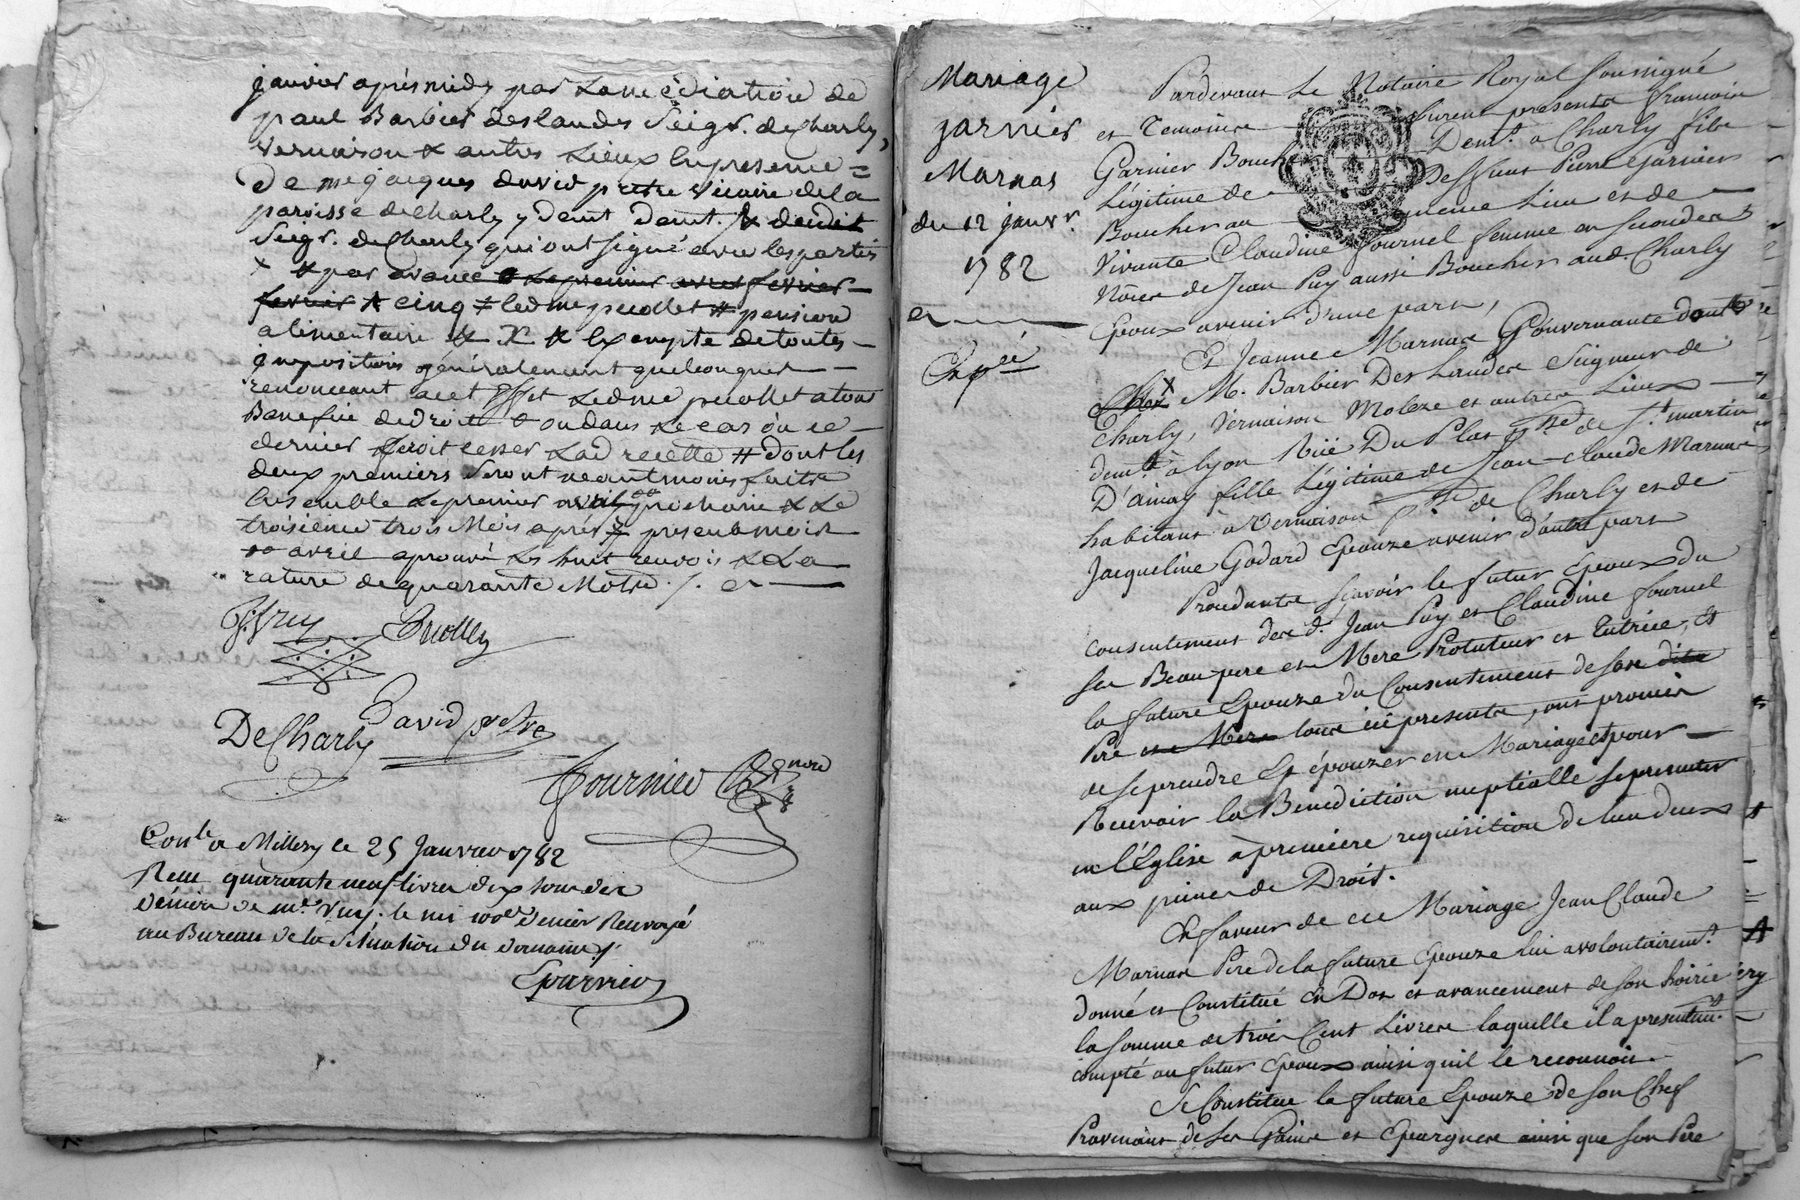 janvier aprèsmidy par La mediation de
paul Barbier deslandes Seigr. de Charly,
vernaison & autres Lieux En presence =
De me jacques david pretre vicaire de la
paroisse de charly y demt
Seigr. de Charly qui ont signé avec les parties
x # par avance Le premier
fevrier # cinq # led me # pension
alimentaire & # & Exempte de toutes -
impositions généralement quelconques -
renonceant a cet Effet Ledme a tout
Benefice de droit # ou dans Le cas où ce -
dernier feroit cesser Lad recette # dont les
deux premiers Seront neantmoins faits
Ensemble Le premier avril prochain & Le
troisieme trois Mois après # present mois
avril aprouvé Les huit renvois & La
rature de quarante Mots ./.
De Charly David prêtre
Fournier
Conlé a Millery le 25 Janvier 1782
Recu quarante neuf livres dix sous dix
déniers de me le mi 100er Denier Renvoyé
au Bureau de la Situation du domaine ./.
Mariage
garnier
Marnas
du 12 janvr.
1782
Expéé
Pardevant Le Notaire Royal Soussigné
et Temoins furent presents francois
Garnier Boucher Demt. à Charly fils
Légitime de Deffunt Pierre Garnier
Boucher au meme Lieu et de
Vivante Claudine Fournel femme en secondes
Nôces de Jean Puy aussi Boucher aud. Charly
Epoux avenir d'une part,
Et Jeanne Marnas Gouvernante
Chez x M. Barbier Des Landes Seigneur de
Charly, Vernaison Moleze et autres Lieux
demte à lyon Rüe Du Plat psse de St. martin
D'ainay fille Légitime de Jean-claude Marnas
habitant à Vernaison psse de Charly et de
Jacqueline Godard Epouze avenir d'autre part
Procedants sçavoir le futur Epoux du
consentement des d. Jean Puy et Claudine fournel
ses Beau pere et Mere Protuteur et Tutrice, et
la future Epouze du Consentement de son dits
Pere et Mere tous ici presents, ont promis
de se prendre et épouzer en Mariage et pour
Recevoir la Benediction nuptialle se presenter
en l'Eglise à premiere requisition de l'un deux
aux peines de Droit.
En faveur de ce Mariage Jean Claude
Marnas Pere de la future Epouze lui a volontairemt.
donné et Constitué en Dot et avancement de son hoirie
la somme de trois Cent Livres laquelle il a presentemt.
compté au futur Epoux ainsi qu'il le reconnoit
Se Constitue la future Epouze de son Chef
Provenant de ses Gains et Epargnes ainsi que son Pere